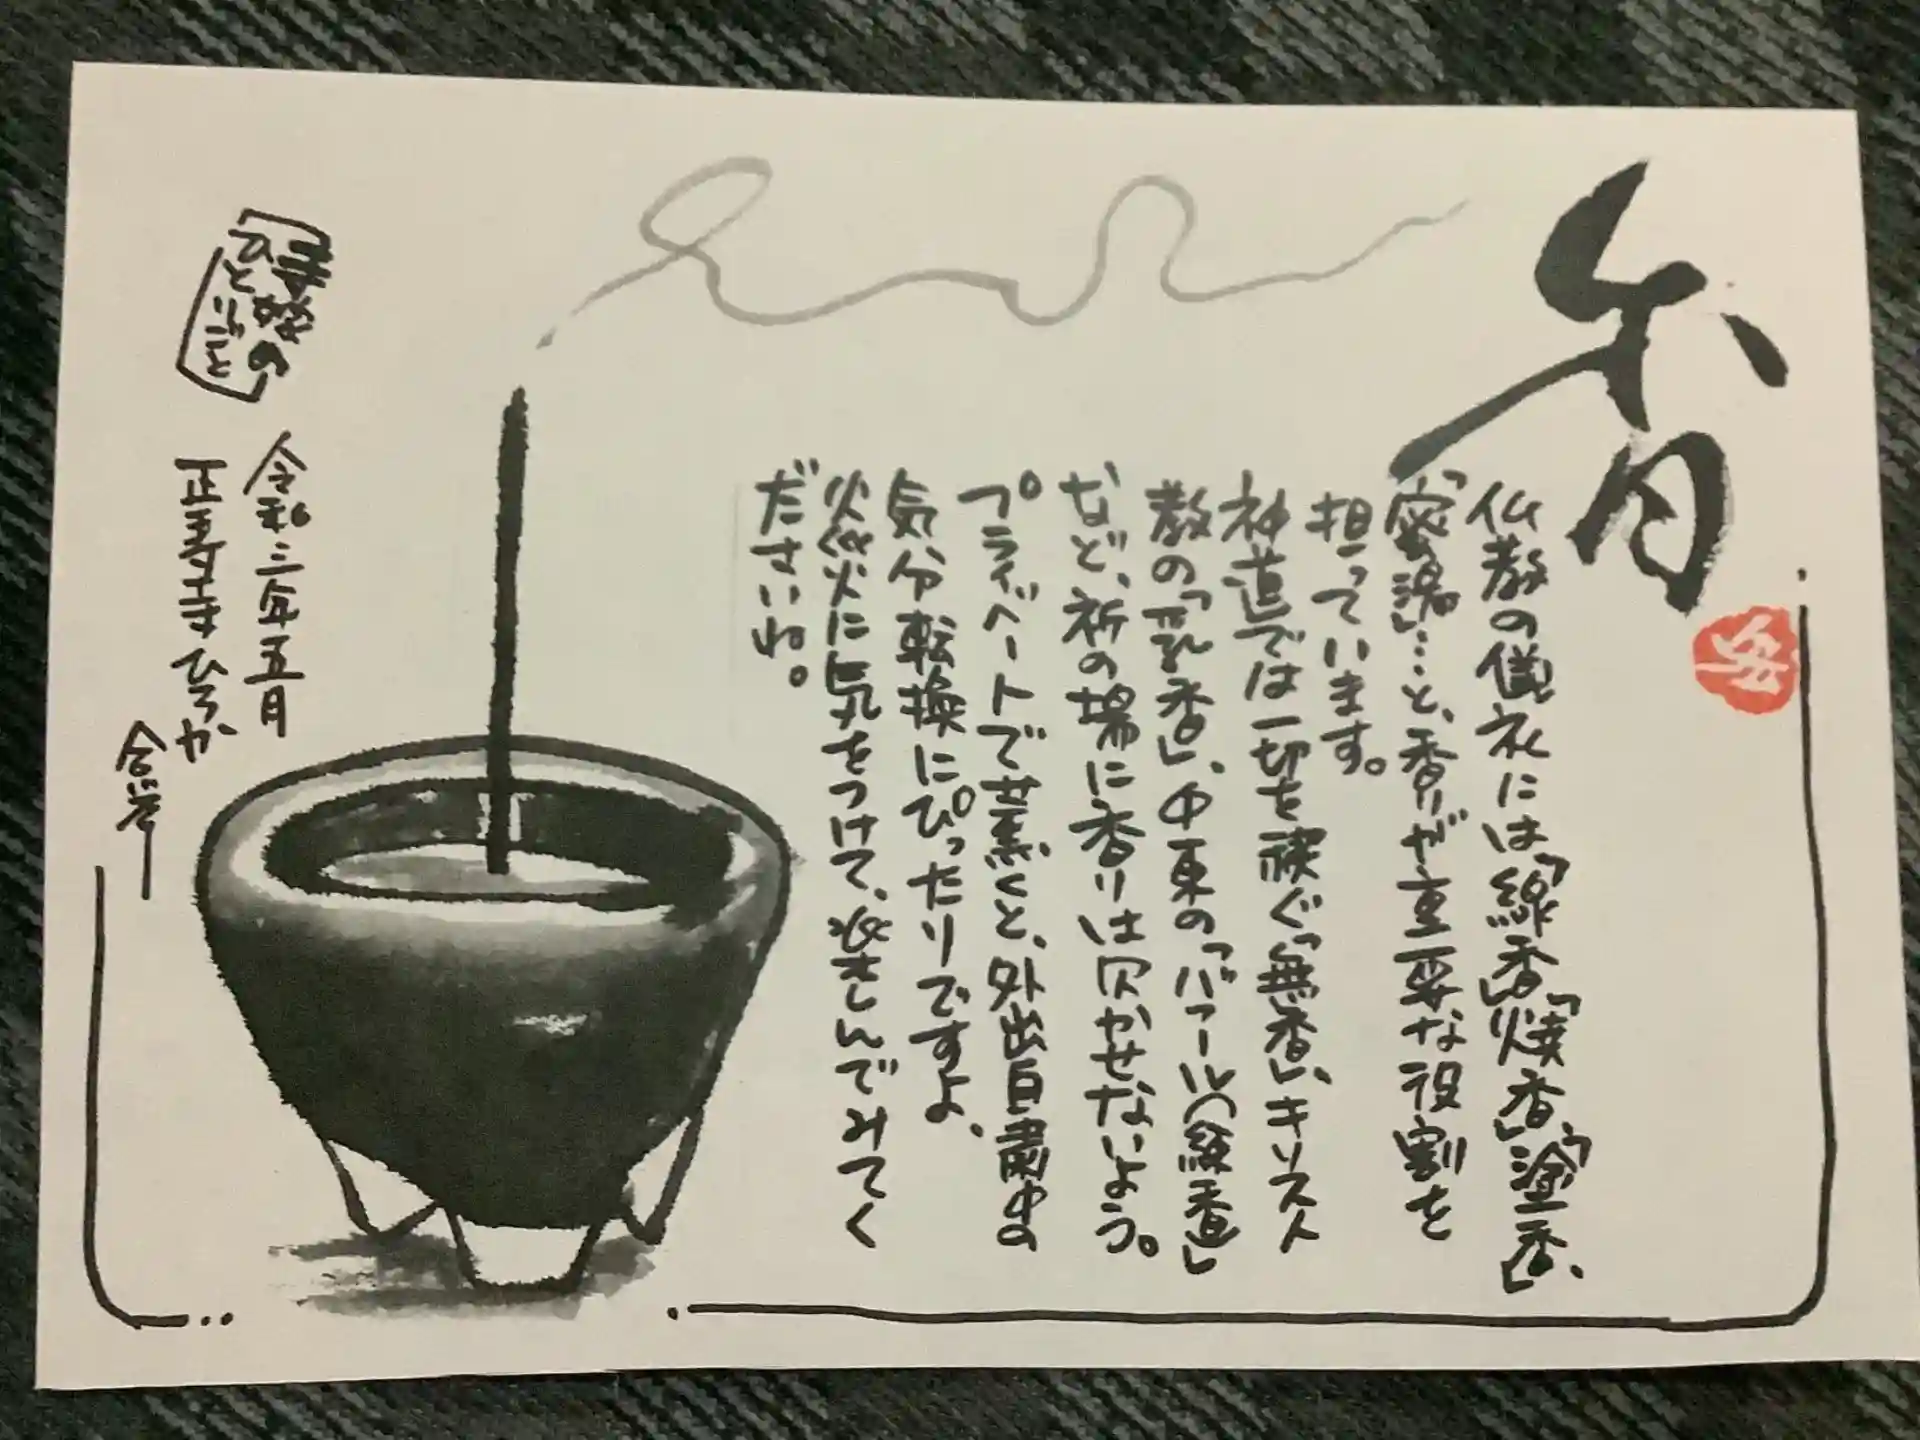 香
仏教の儀礼には「線香」「焼香」「塗香、
「蜜湯」…と、香りが重要な役割を
担っています。
神道では一切を禊ぐ「無香」、キリスト
教の「乳香」、中東の「バフール(練香)」
など、祈の場に香りは欠かせないよう。
プライベートで薫くと、外出自粛中の
気分転換にぴったりですよ、
火災火に気をつけて、楽しんでみてく
ださいね。
ひとりごと
令和三年五月
正寿まひろか
合掌